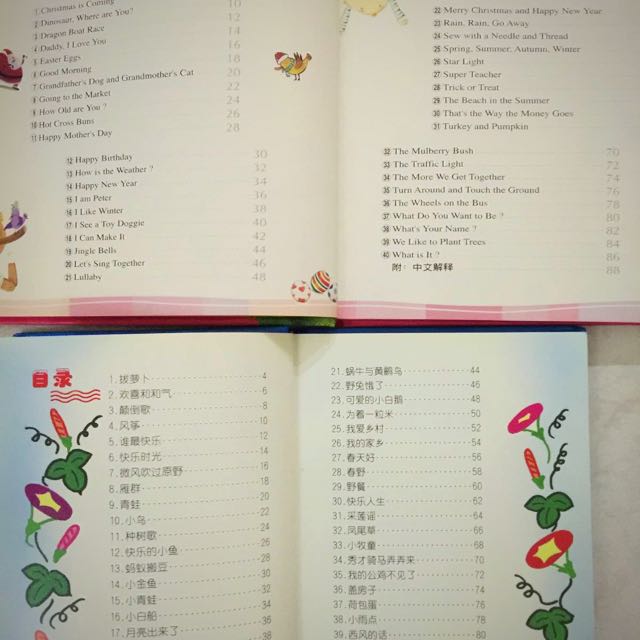 ① Christmas is Coming 10
② Dinosaur, Where are You? 12
③ Dragon Boat Race 14
④ Daddy, I Love You 16
⑤ Easter Eggs 18
⑥ Good Morning
⑦ Grandfather's Dog and Grandmother's Cat 20
⑧ Going to the Market 22
⑨ How Old are You ? 24
⑩ Hot Cross Buns 26
⑪ Happy Mother's Day 28
⑫ Happy Birthday 30
⑬ How is the Weather ? 32
⑭ Happy New Year 34
⑮ I am Peter 36
⑯ I Like Winter 38
⑰ I See a Toy Doggie 40
⑱ I Can Make It 42
⑲ Jingle Bells 44
⑳ Let's Sing Together 46
㉑ Lullaby 48
㉒ Merry Christmas and Happy New Year
㉓ Rain, Rain, Go Away
㉔ Sew with a Needle and Thread
㉕ Spring, Summer, Autumn, Winter
㉖ Star Light
㉗ Super Teacher
㉘ Trick or Treat
㉙ The Beach in the Summer
㉚ That's the Way the Money Goes
㉛ Turkey and Pumpkin
㉜ The Mulberry Bush 70
㉝ The Traffic Light 72
㉞ The More We Get Together 74
㉟ Turn Around and Touch the Ground 76
㊱ The Wheels on the Bus 78
㊲ What Do You Want to Be ? 80
㊳ What's Your Name ? 82
㊴ We Like to Plant Trees 84
㊵ What is It ? 86
附：中文解释 88
目录
1. 拔萝卜 4
2. 欢喜和和气 6
3. 颠倒歌 8
4. 风筝 10
5. 谁最快乐 12
6. 快乐时光 14
7. 微风吹过原野 16
8. 雁群 18
9. 青蛙 20
10. 小鸟 22
11. 种树歌 24
12. 快乐的小鱼 26
13. 蚂蚁搬豆 28
14. 小金鱼 30
15. 小青蛙 32
16. 小白船 34
17. 月亮出来了 36
38
21. 蜗牛与黄鹂鸟 44
22. 野兔饿了 46
23. 可爱的小白鹅 48
24. 为着一粒米 50
25. 我爱乡村 52
26. 我的家乡 54
27. 春天好 56
28. 春野 58
29. 野餐 60
30. 快乐人生 62
31. 采莲谣 64
32. 凤尾草 66
33. 小牧童 68
34. 秀才骑马弄弄来 70
35. 我的公鸡不见了 72
36. 盖房子 74
37. 荷包蛋 76
38. 小雨点 78
39. 西风的话 80